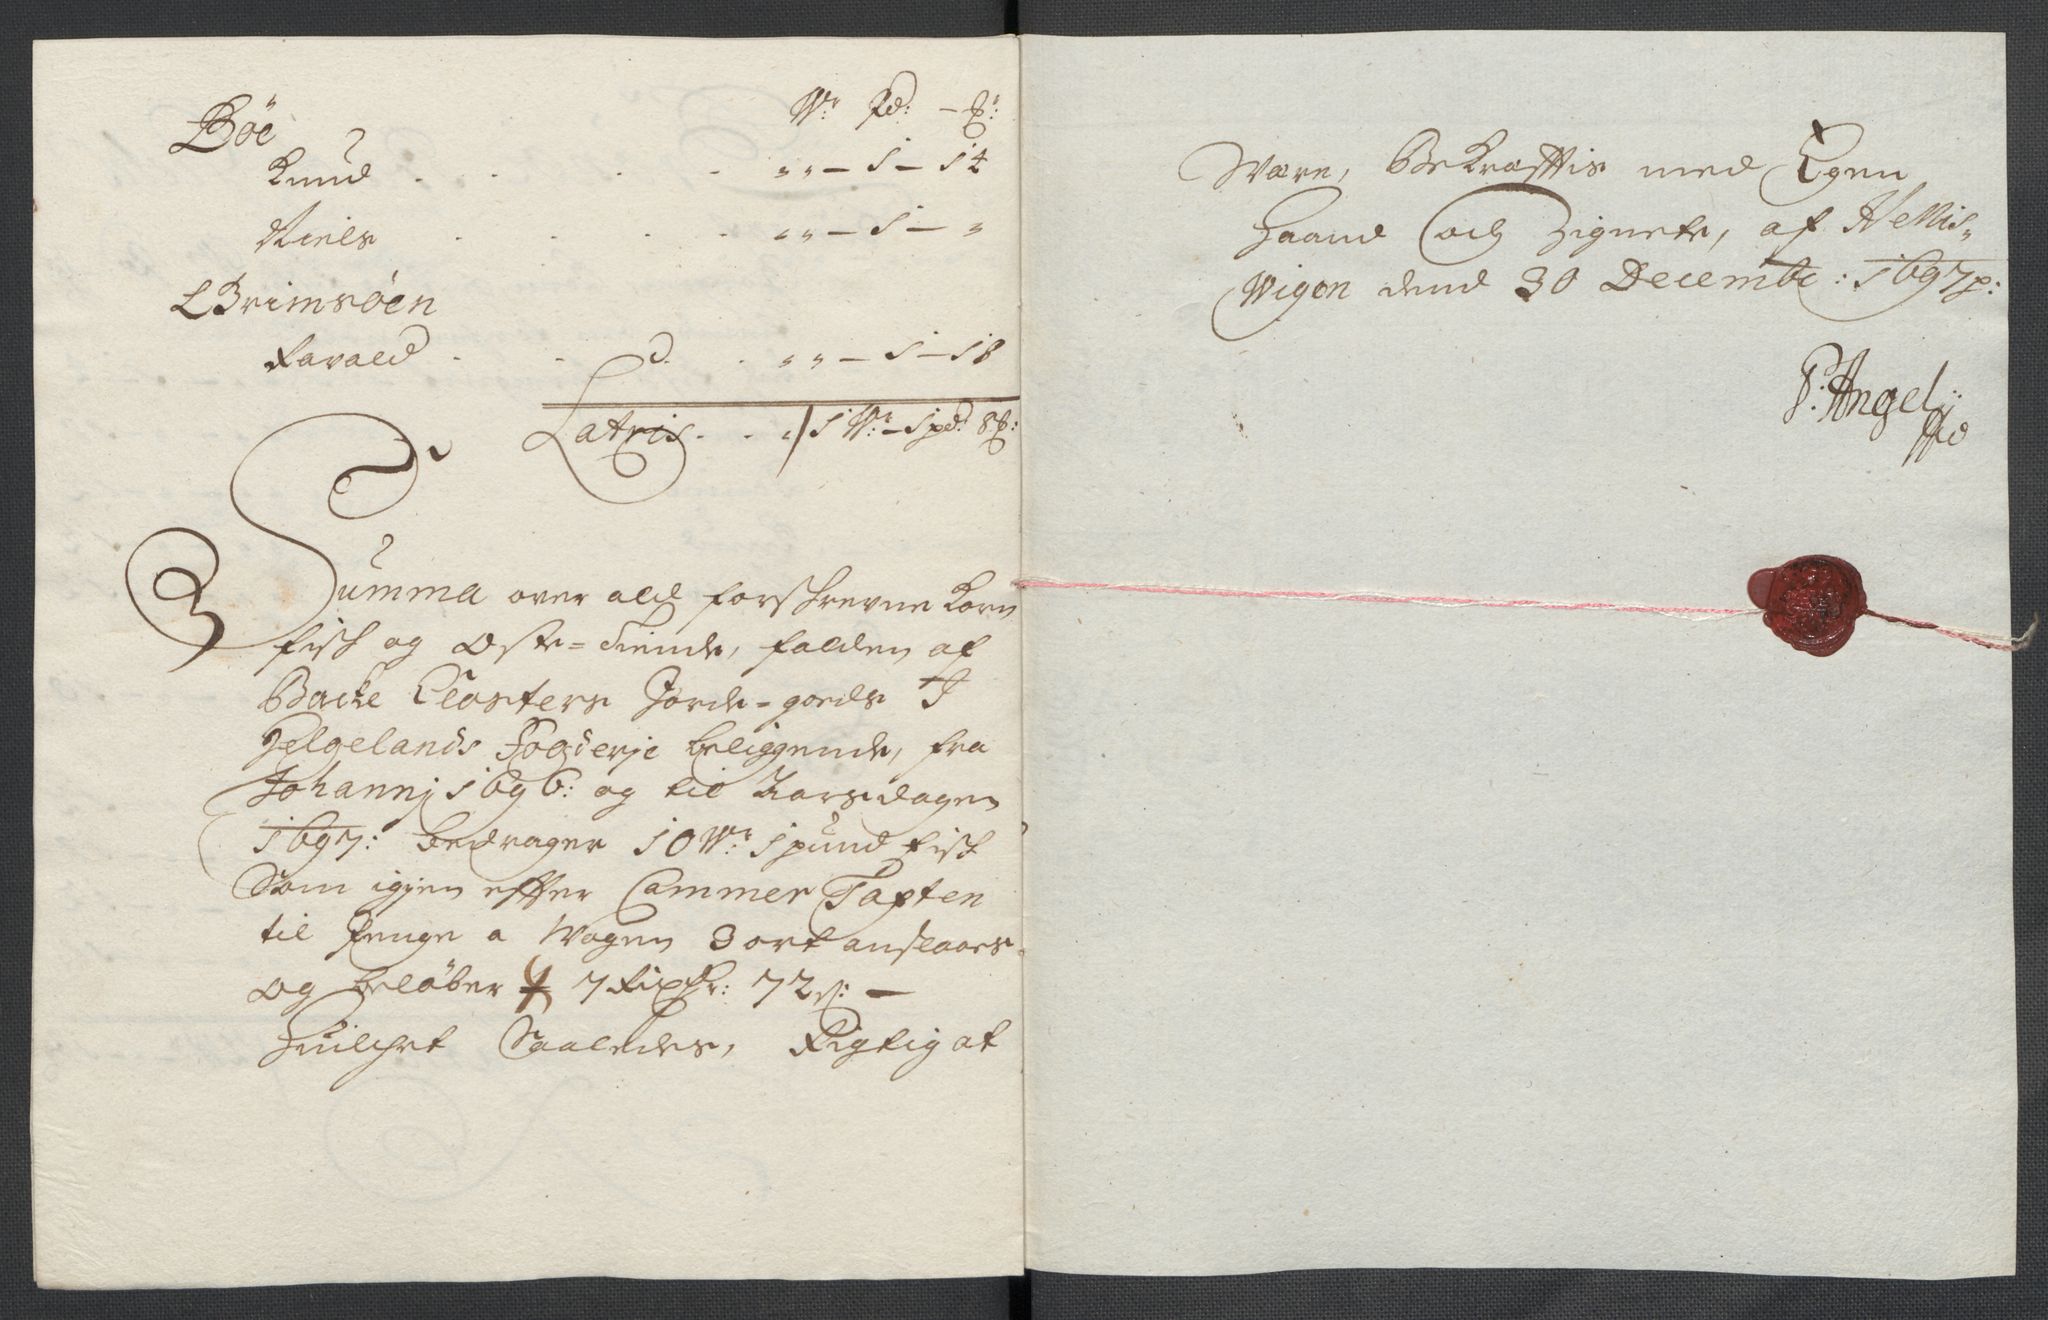 Böe Wr: Pd: – ℔:
Knud . . . . „ „ – 1 – 14
Niels . . . . „ „ – 1 – „
Brimsöen
Farald . . . . „ „ – 1 – 18
Latris . . . 1 Wr: – 1 pd: 8 ℔:
Summa over ald forschrevne Korn
fisch og Oste-Tiende, falden af
Backe Closters Jorde-goeds I
Helgelands Fogderje beliggende, fra
Johannj 1696: og til Aarsdagen
1697: bedrager 10 Wr: 1 pund fisch
Som igjen effter Cammer Taxten
til Penge a Wogen 3 ort anslaaes
og belöber 7 Rixdr: 72 s: –
Huilchet Saaledes, Rigtig at
Være, Bekræfftis med Egen
Haand och Zignete, af Hellis-
Wigen dend 30 Decembr: 1697 p:
P: Angel